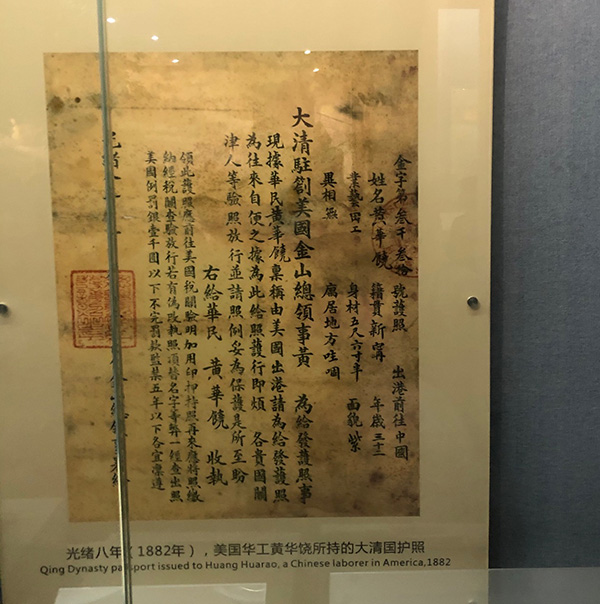 金字第叁千叁拾 號護照 出港前往中國
姓名黃華饒 籍貫新寧 年歲三十
業藝田工 身材五尺六寸半 面貌紫
異相無 寓居地方哇
大清駐劄美國金山總領事黃 為給發護照事
現據華民黃華饒稟稱由美國出港請為給發護照
為往來自便之據為此給照護行即煩 各貴國關
津人等驗照放行並請照例妥為保護是所至盼
右給華民 黃華饒 收執
領此護照應前往美國稅關驗明加用印押持照再來應將照繳
納經稅關查驗放行若有偽改執照頂替名字等弊一經查出照
美國例罰銀壹千圓以下不完罰款監禁五年以下各宜凜遵
光緒
光绪八年（1882年），美国华工黄华饶所持的大清国护照
Qing Dynasty passport issued to Huang Huarao, a Chinese laborer in America,1882